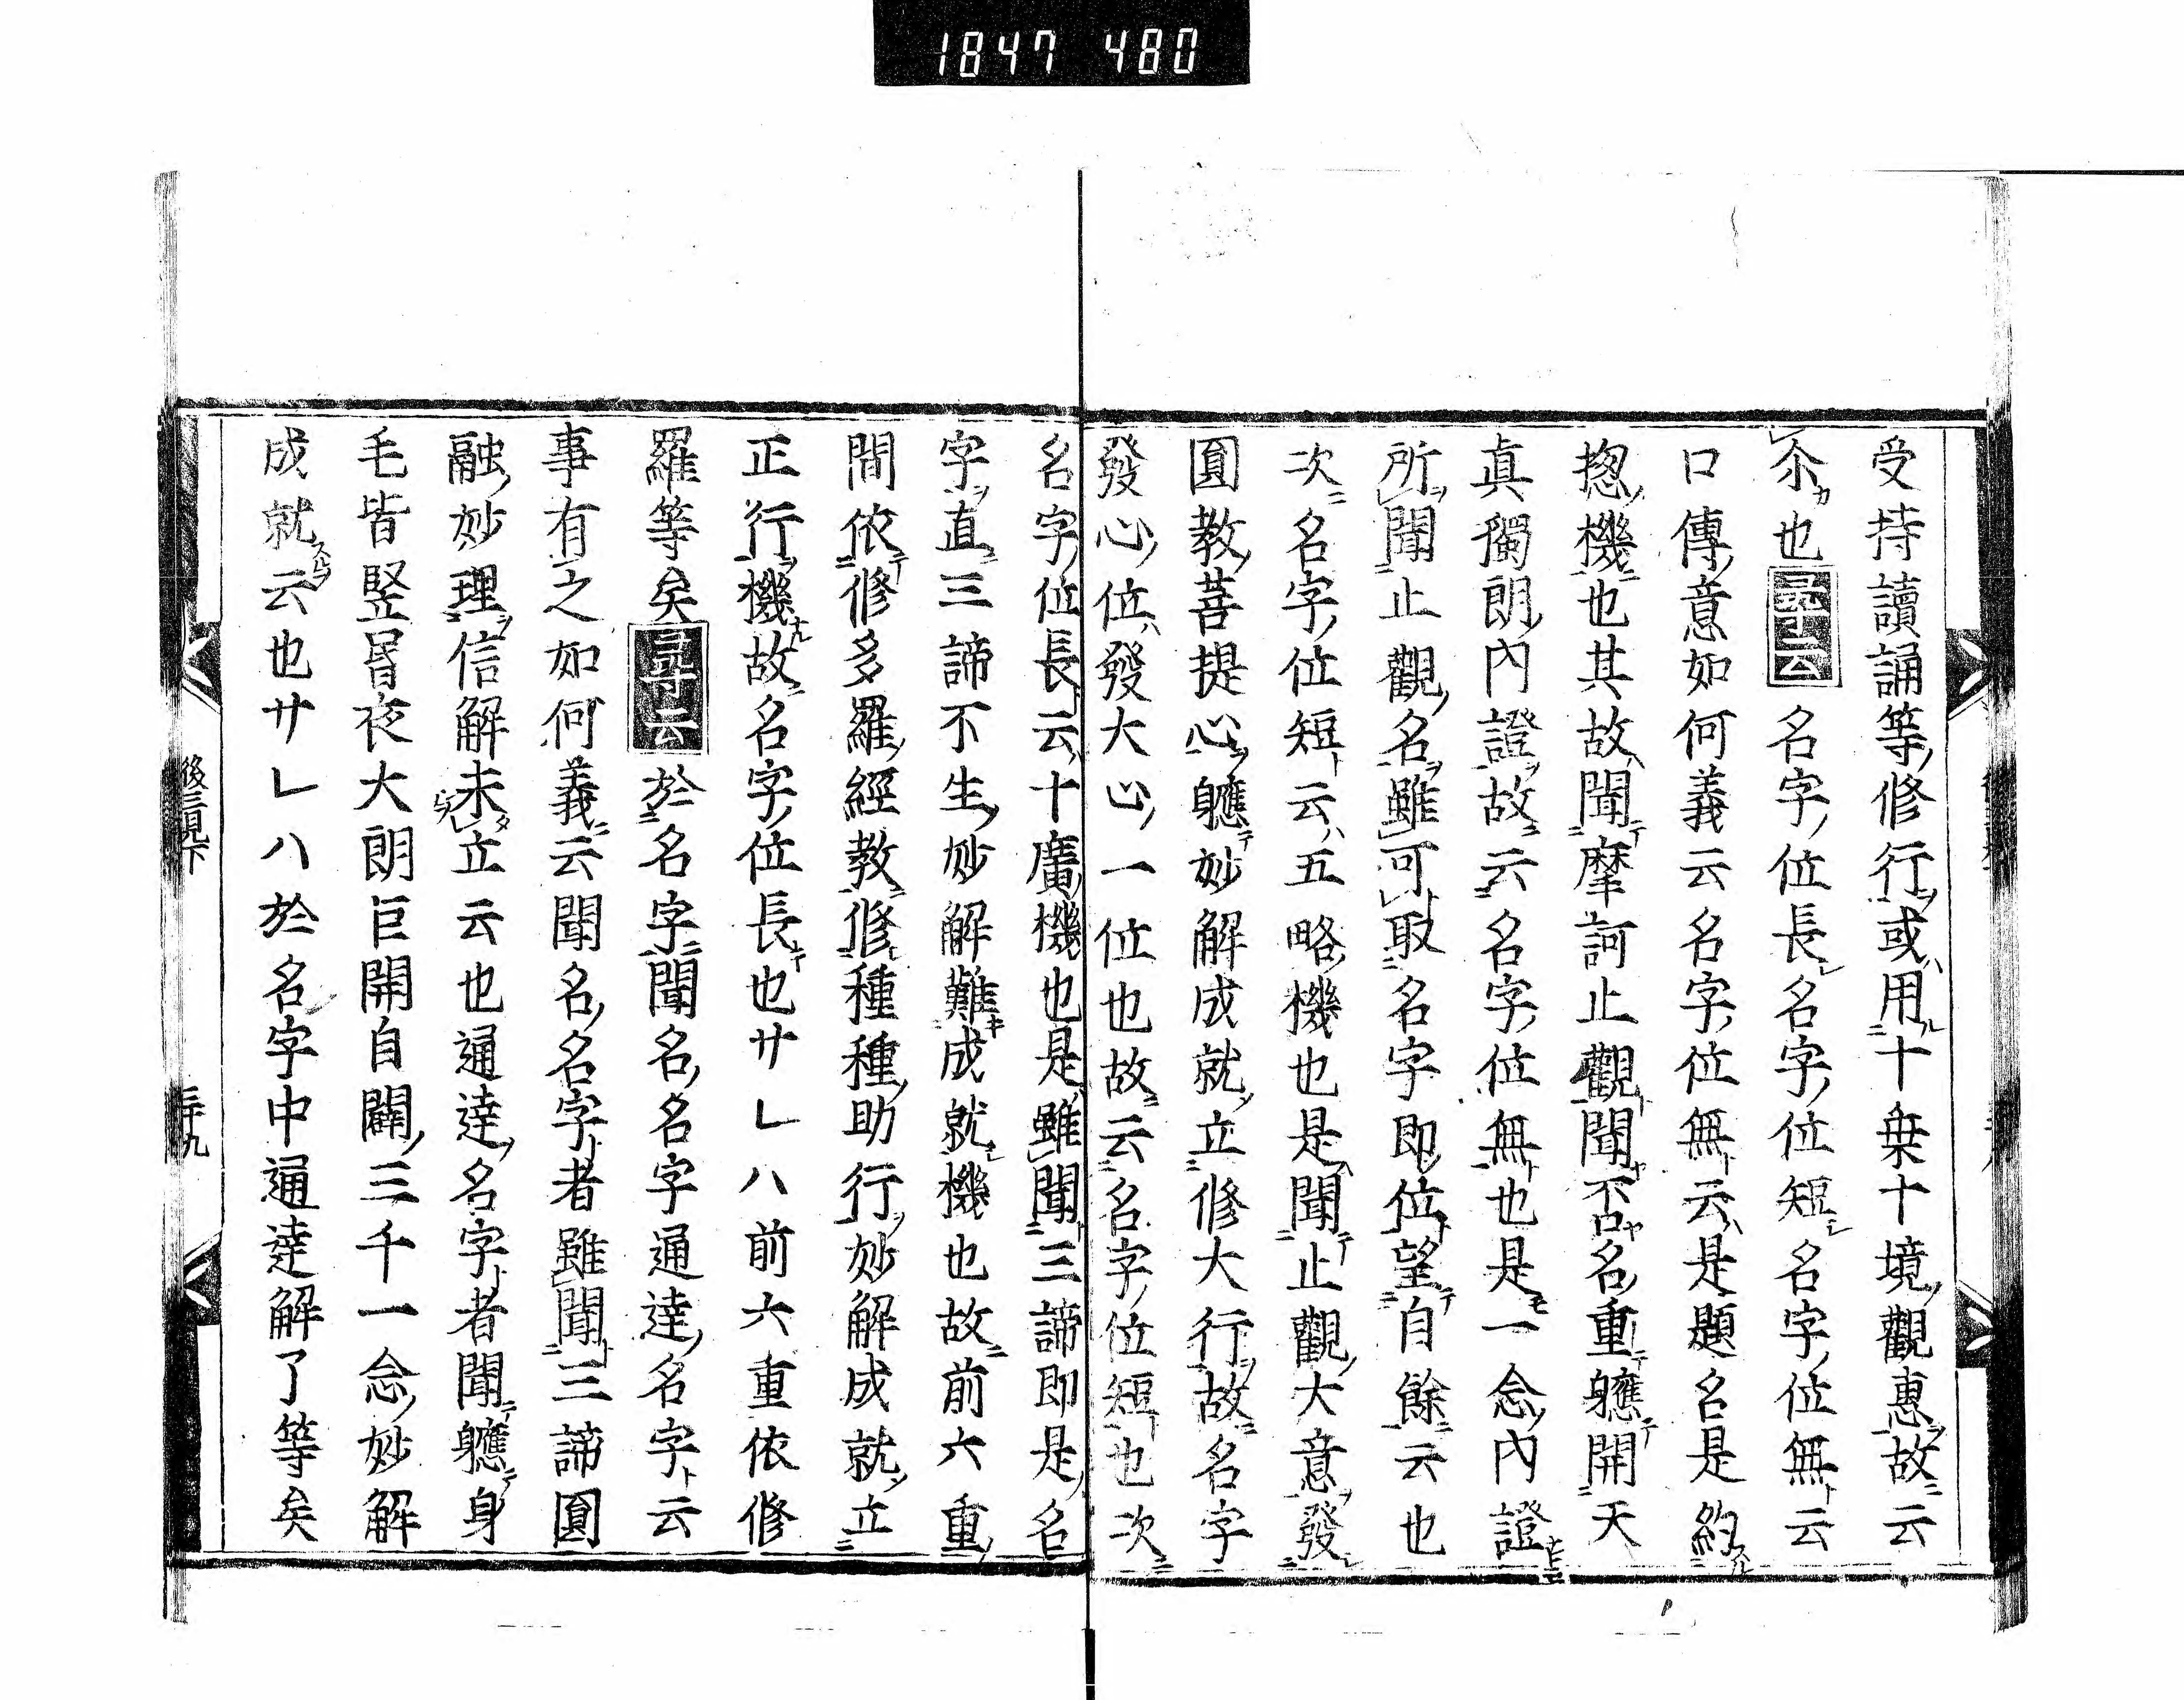 1847 480
受持讀誦等修行或用十乗十境觀惠故云
尒也尋云名字位長名字位短名字位無云
口傳意如何義云名字位無云是題名是約
揔機也其故聞摩訶止觀聞否名重軈開天
真獨朗內證故云名字位無也是一念內證
所聞止觀名雖可取名字即位望自餘云也
次名字位短云五略機也是聞止觀大意發
圓教菩提心軈妙解成就立修大行故名字
發心位發大心一位也故云名字位短也次
名字位長云十廣機也是雖聞三諦即是名
字直三諦不生妙解難成就機也故前六重
間依修多羅經教修種種助行妙解成就立
正行機故名字位長也サレハ前六重依修
羅等矣尋云於名字聞名名字通達名字云
事有之如何義云聞名名字者雖聞三諦圓
融妙理信解未立云也通達名字者聞軈身
毛皆竪昬夜大朗巨開自闢三千一念妙解
成就云也サレハ於名字中通達解了等矣
後三見下
三十九